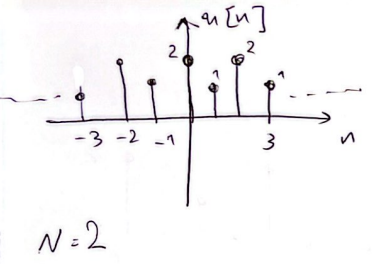 x[n]
2 1 2 1
-3 -2 -1 3 n
N=2